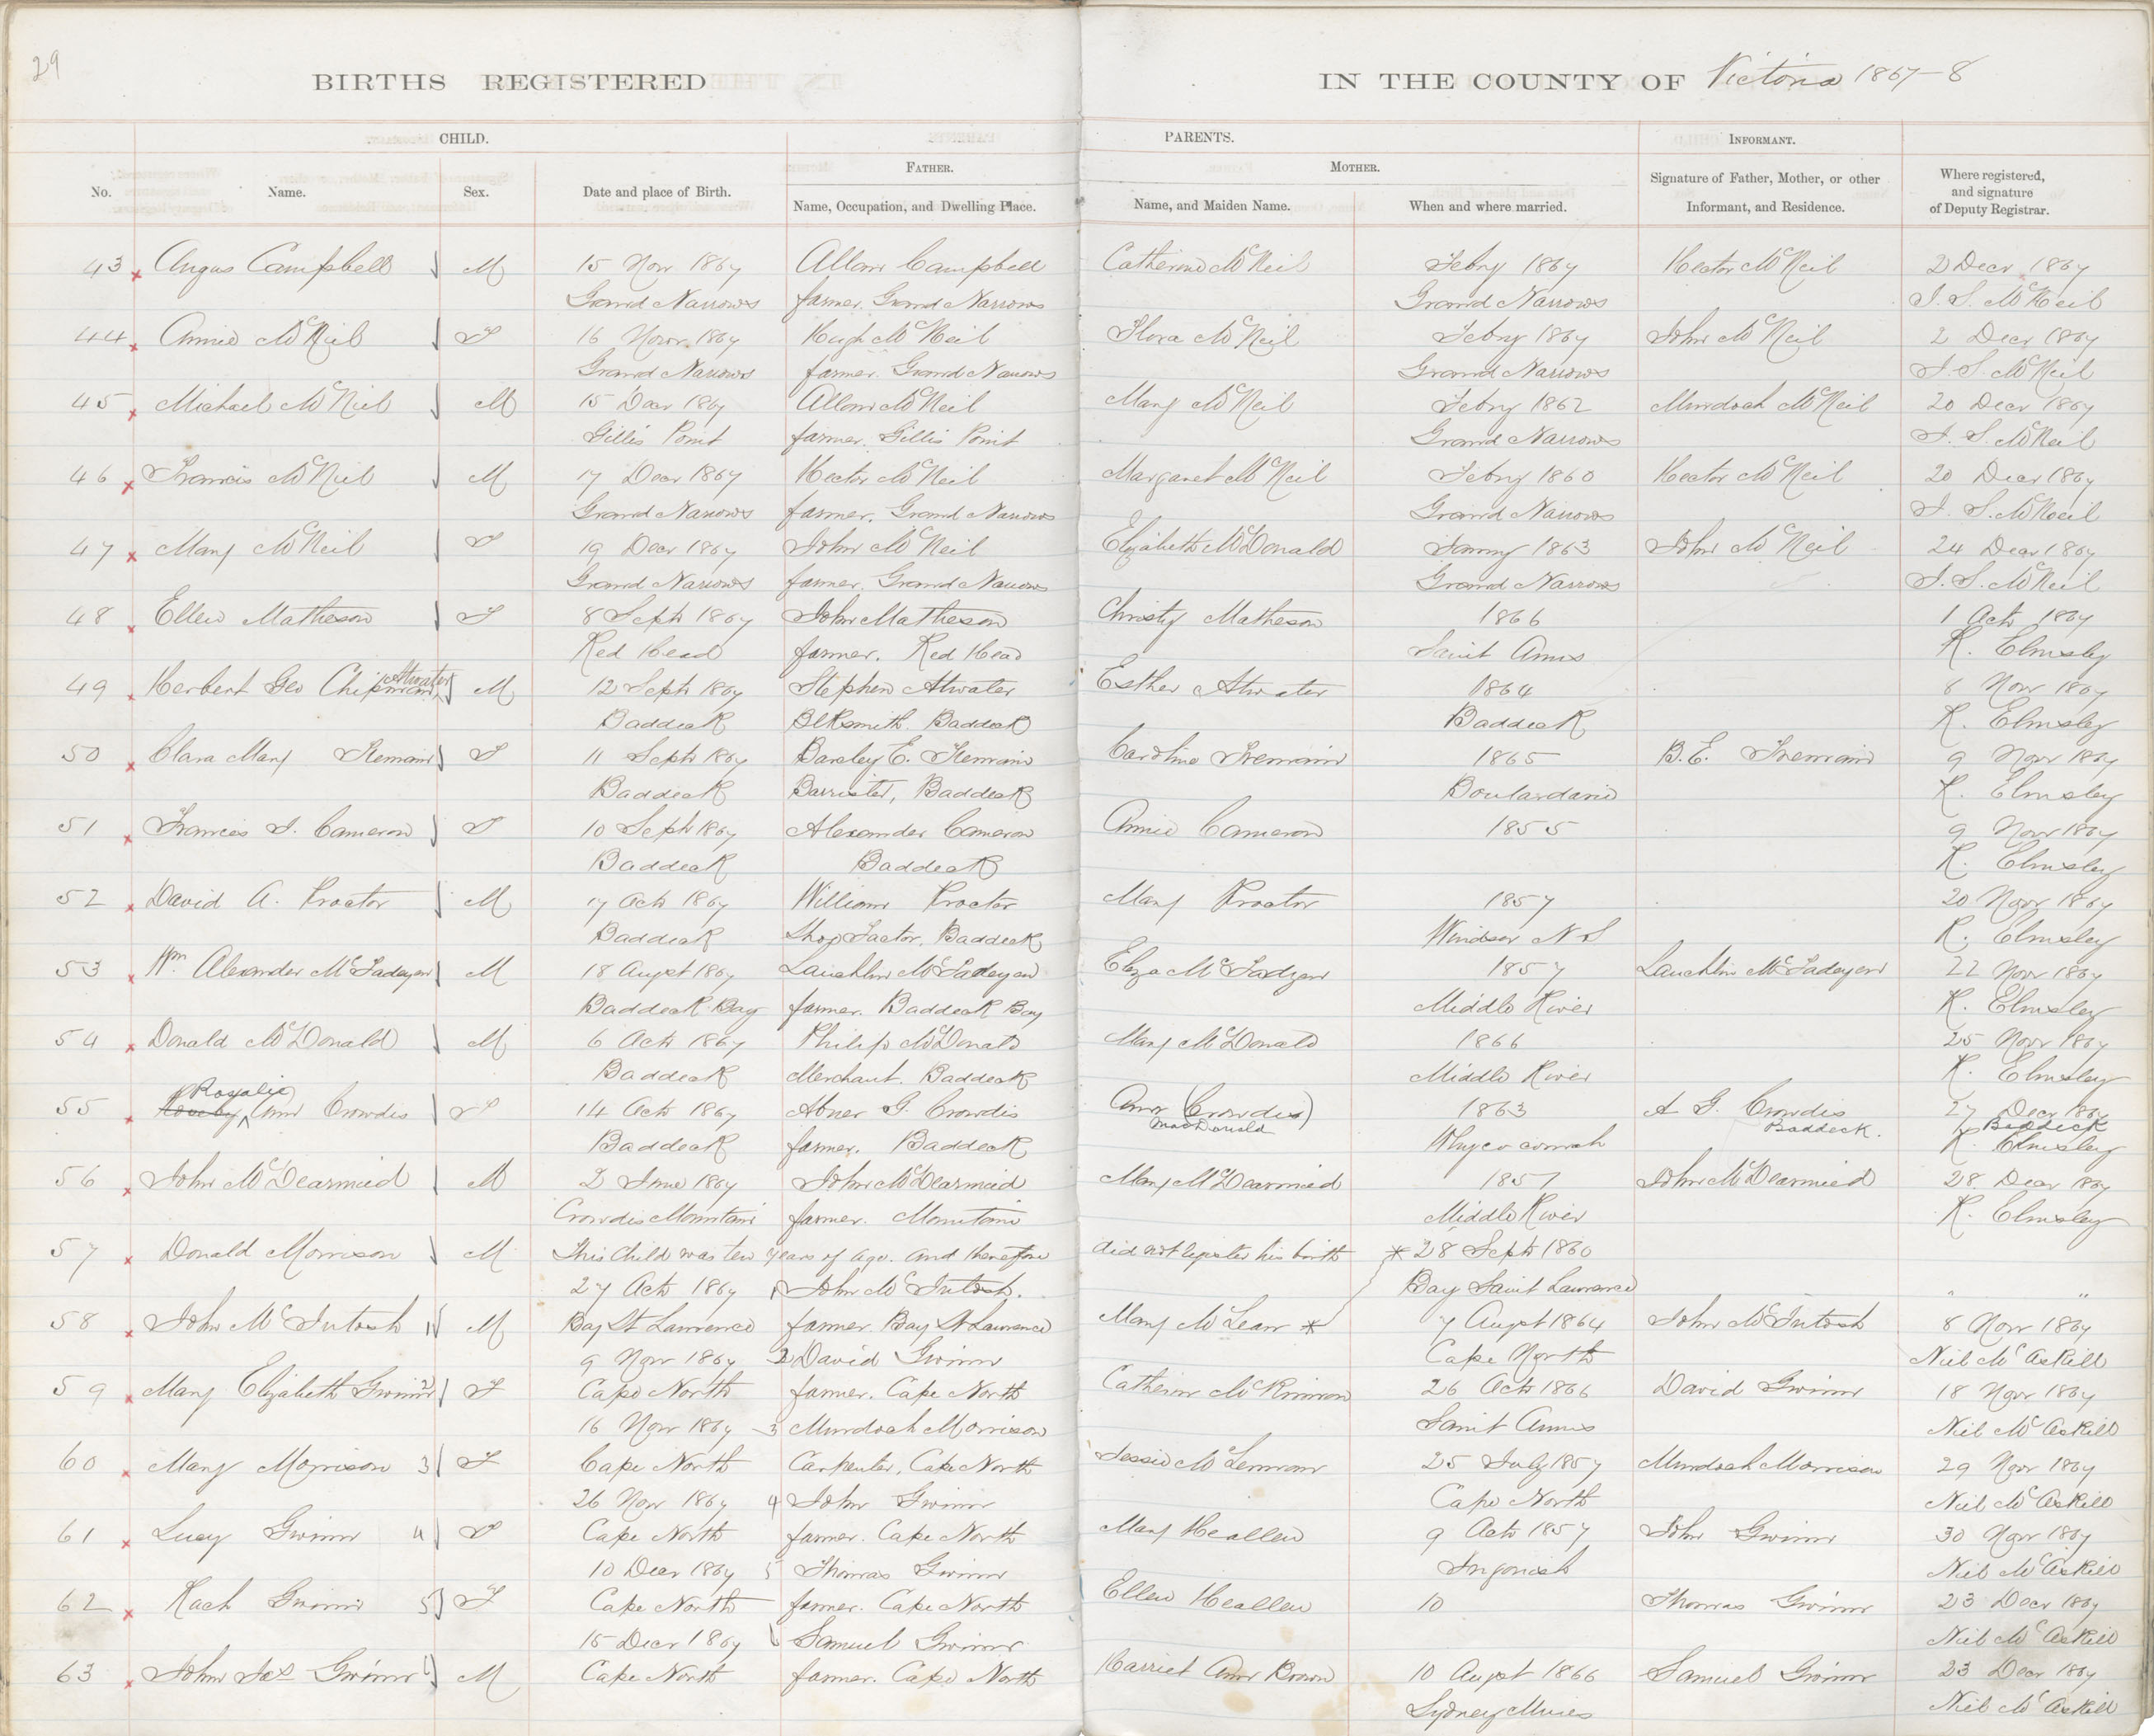 29
BIRTHS REGISTERED IN THE COUNTY OF Victoria 1867-8
CHILD. PARENTS. INFORMANT.
FATHER. MOTHER.
No. Name. Sex. Date and place of Birth. Name, Occupation, and Dwelling Place. Name, and Maiden Name. When and where married. Signature of Father, Mother, or other Informant, and Residence. Where registered, and signature of Deputy Registrar.
43 Angus Campbell M 15 Novr 1867 Allan Campbell Catherine McNeil Febry 1867 Hector McNeil 2 Decr 1867
Grand Narrows farmer. Grand Narrows Grand Narrows J. S. McNeil
44 Annie McNeil F 16 Novr 1867 Hugh McNeil Flora McNeil Febry 1867 John McNeil 2 Decr 1867
Grand Narrows farmer. Grand Narrows Grand Narrows J. S. McNeil
45 Michael McNeil M 15 Decr 1867 Allan McNeil Mary McNeil Febry 1862 Murdoch McNeil 20 Decr 1867
Gillis Point farmer. Gillis Point Grand Narrows J. S. McNeil
46 Francis McNeil M 17 Decr 1867 Hector McNeil Margaret McNeil Febry 1860 Hector McNeil 20 Decr 1867
Grand Narrows farmer. Grand Narrows Grand Narrows J. S. McNeil
47 Mary McNeil F 19 Decr 1867 John McNeil Elizabeth McDonald Janry 1863 John McNeil 24 Decr 1867
Grand Narrows farmer. Grand Narrows Grand Narrows J. S. McNeil
48 Ellen Matheson F 8 Sept 1867 John Matheson Christy Matheson 1866 1 Oct 1867
Red Head farmer. Red Head Saint Anns R. Elmsley
49 Herbert Geo Chipman Atwater M 12 Sept 1867 Stephen Atwater Esther Atwater 1864 8 Novr 1867
Baddeck Blksmith Baddeck Baddeck R. Elmsley
50 Clara Mary Tremain F 11 Sept 1867 E. Tremain Caroline Tremain 1865 B. E. Tremain 9 Novr 1867
Baddeck Barrister, Baddeck Boulardarie R. Elmsley
51 Frances J. Cameron F 10 Sept 1867 Alexander Cameron Annie Cameron 1855 9 Novr 1867
Baddeck Baddeck R. Elmsley
52 David A. Proctor M 17 Oct 1867 William Proctor Mary Proctor 1857 20 Novr 1867
Baddeck Baddeck Windsor N S R. Elmsley
53 Wm Alexander McFadyen M 18 Augst 1867 Lauchlin McFadyen Eliza McFadyen 1857 Lauchlin McFadyen 22 Novr 1867
Baddeck Bay farmer. Baddeck Bay Middle River R. Elmsley
54 Donald McDonald M 6 Oct 1867 Philip McDonald Mary McDonald 1866 25 Novr 1867
Baddeck Merchant. Baddeck Middle River R. Elmsley
Rosalie
55 Ann Crowdis F 14 Oct 1867 Abner G. Crowdis Ann (Crowdis) 1863 A G. Crowdis 27 Decr 1867
MacDonald Baddeck. Baddeck
Baddeck farmer. Baddeck Whycocomah R. Elmsley
56 John McDearmid M 2 June 1867 John McDearmid Mary McDearmid 1857 John McDearmied 28 Decr 1867
Crowdis Mountain farmer. Mountain Middle River R. Elmsley
57 Donald Morrison M This Child was ten years of age. and therefore did not register his birth * 28 Sept 1860
27 Oct 1867 1 John McIntosh. Bay Saint Lawrence " "
58 John McIntosh 1 M Bay St Lawrence farmer. Bay St Lawrence Mary McLean * 7 Augst 1864 John McIntosh 8 Novr 1867
9 Novr 1867 2 David Gwinn Cape North Niel McAskill
59 Mary Elizabeth Gwinn 2 F Cape North farmer. Cape North Catherine McKinnon 26 Oct 1866 David Gwinn 18 Novr 1867
16 Novr 1867 3 Murdoch Morrison Saint Anns Niel McAskill
60 Mary Morrison 3 F Cape North Carpenter, Cape North Jessie McLennan 25 July 1857 Murdoch Morrison 29 Novr 1867
26 Novr 1867 4 John Gwinn Cape North Niel McAskill
61 Lucy Gwinn 4 F Cape North farmer. Cape North Mary Heallen 9 Oct 1857 John Gwinn 30 Novr 1867
10 Decr 1867 5 Thomas Gwinn Ingonish Niel McAskill
62 Rach Gwinn 5 F Cape North farmer. Cape North Ellen Heallen 10 Thomas Gwinn 23 Decr 1867
15 Decr 1867 6 Samuel Gwinn Niel McAskill
63 John Jas Gwinn 6 M Cape North farmer. Cape North Harriet Ann Brown 10 Augst 1866 Samuel Gwinn 23 Decr 1867
Sydney Mines Niel McAskill